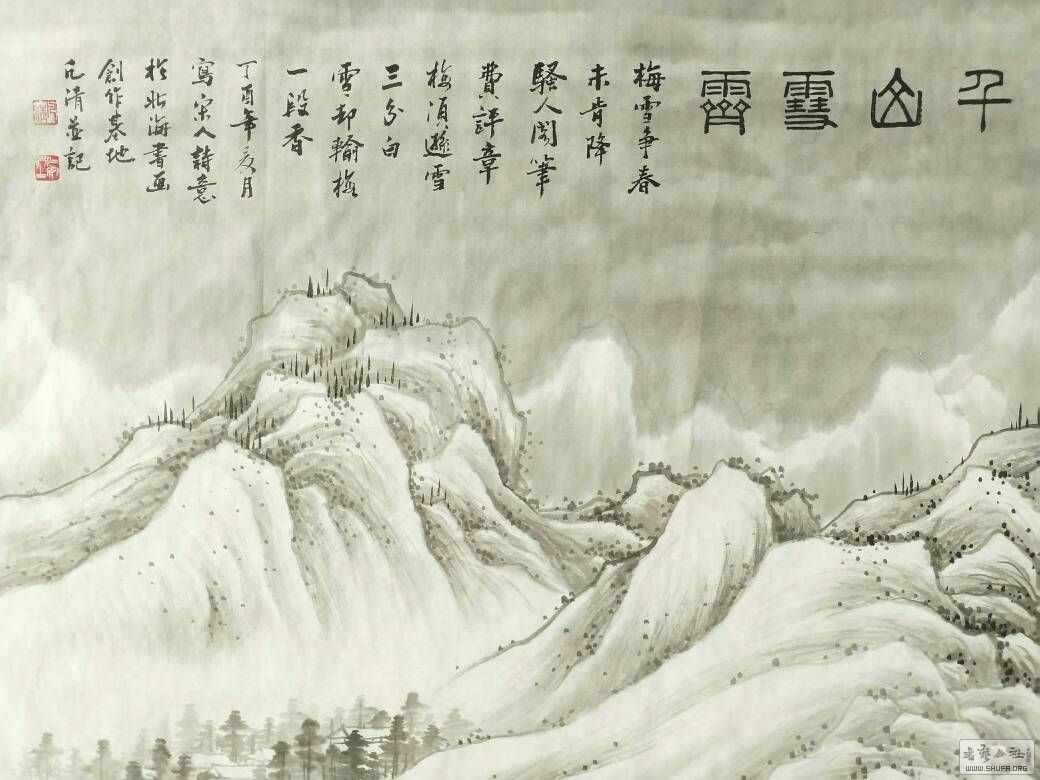 千山雪霽
梅雪爭春
未肯降
騷人閣筆
費評章
梅須遜雪
三分白
雪却輸梅
一段香
丁酉年夏月
寫宋人詩意
於北海書画
創作基地
清並記
書藝公社
WWW.SHUFA.ORG